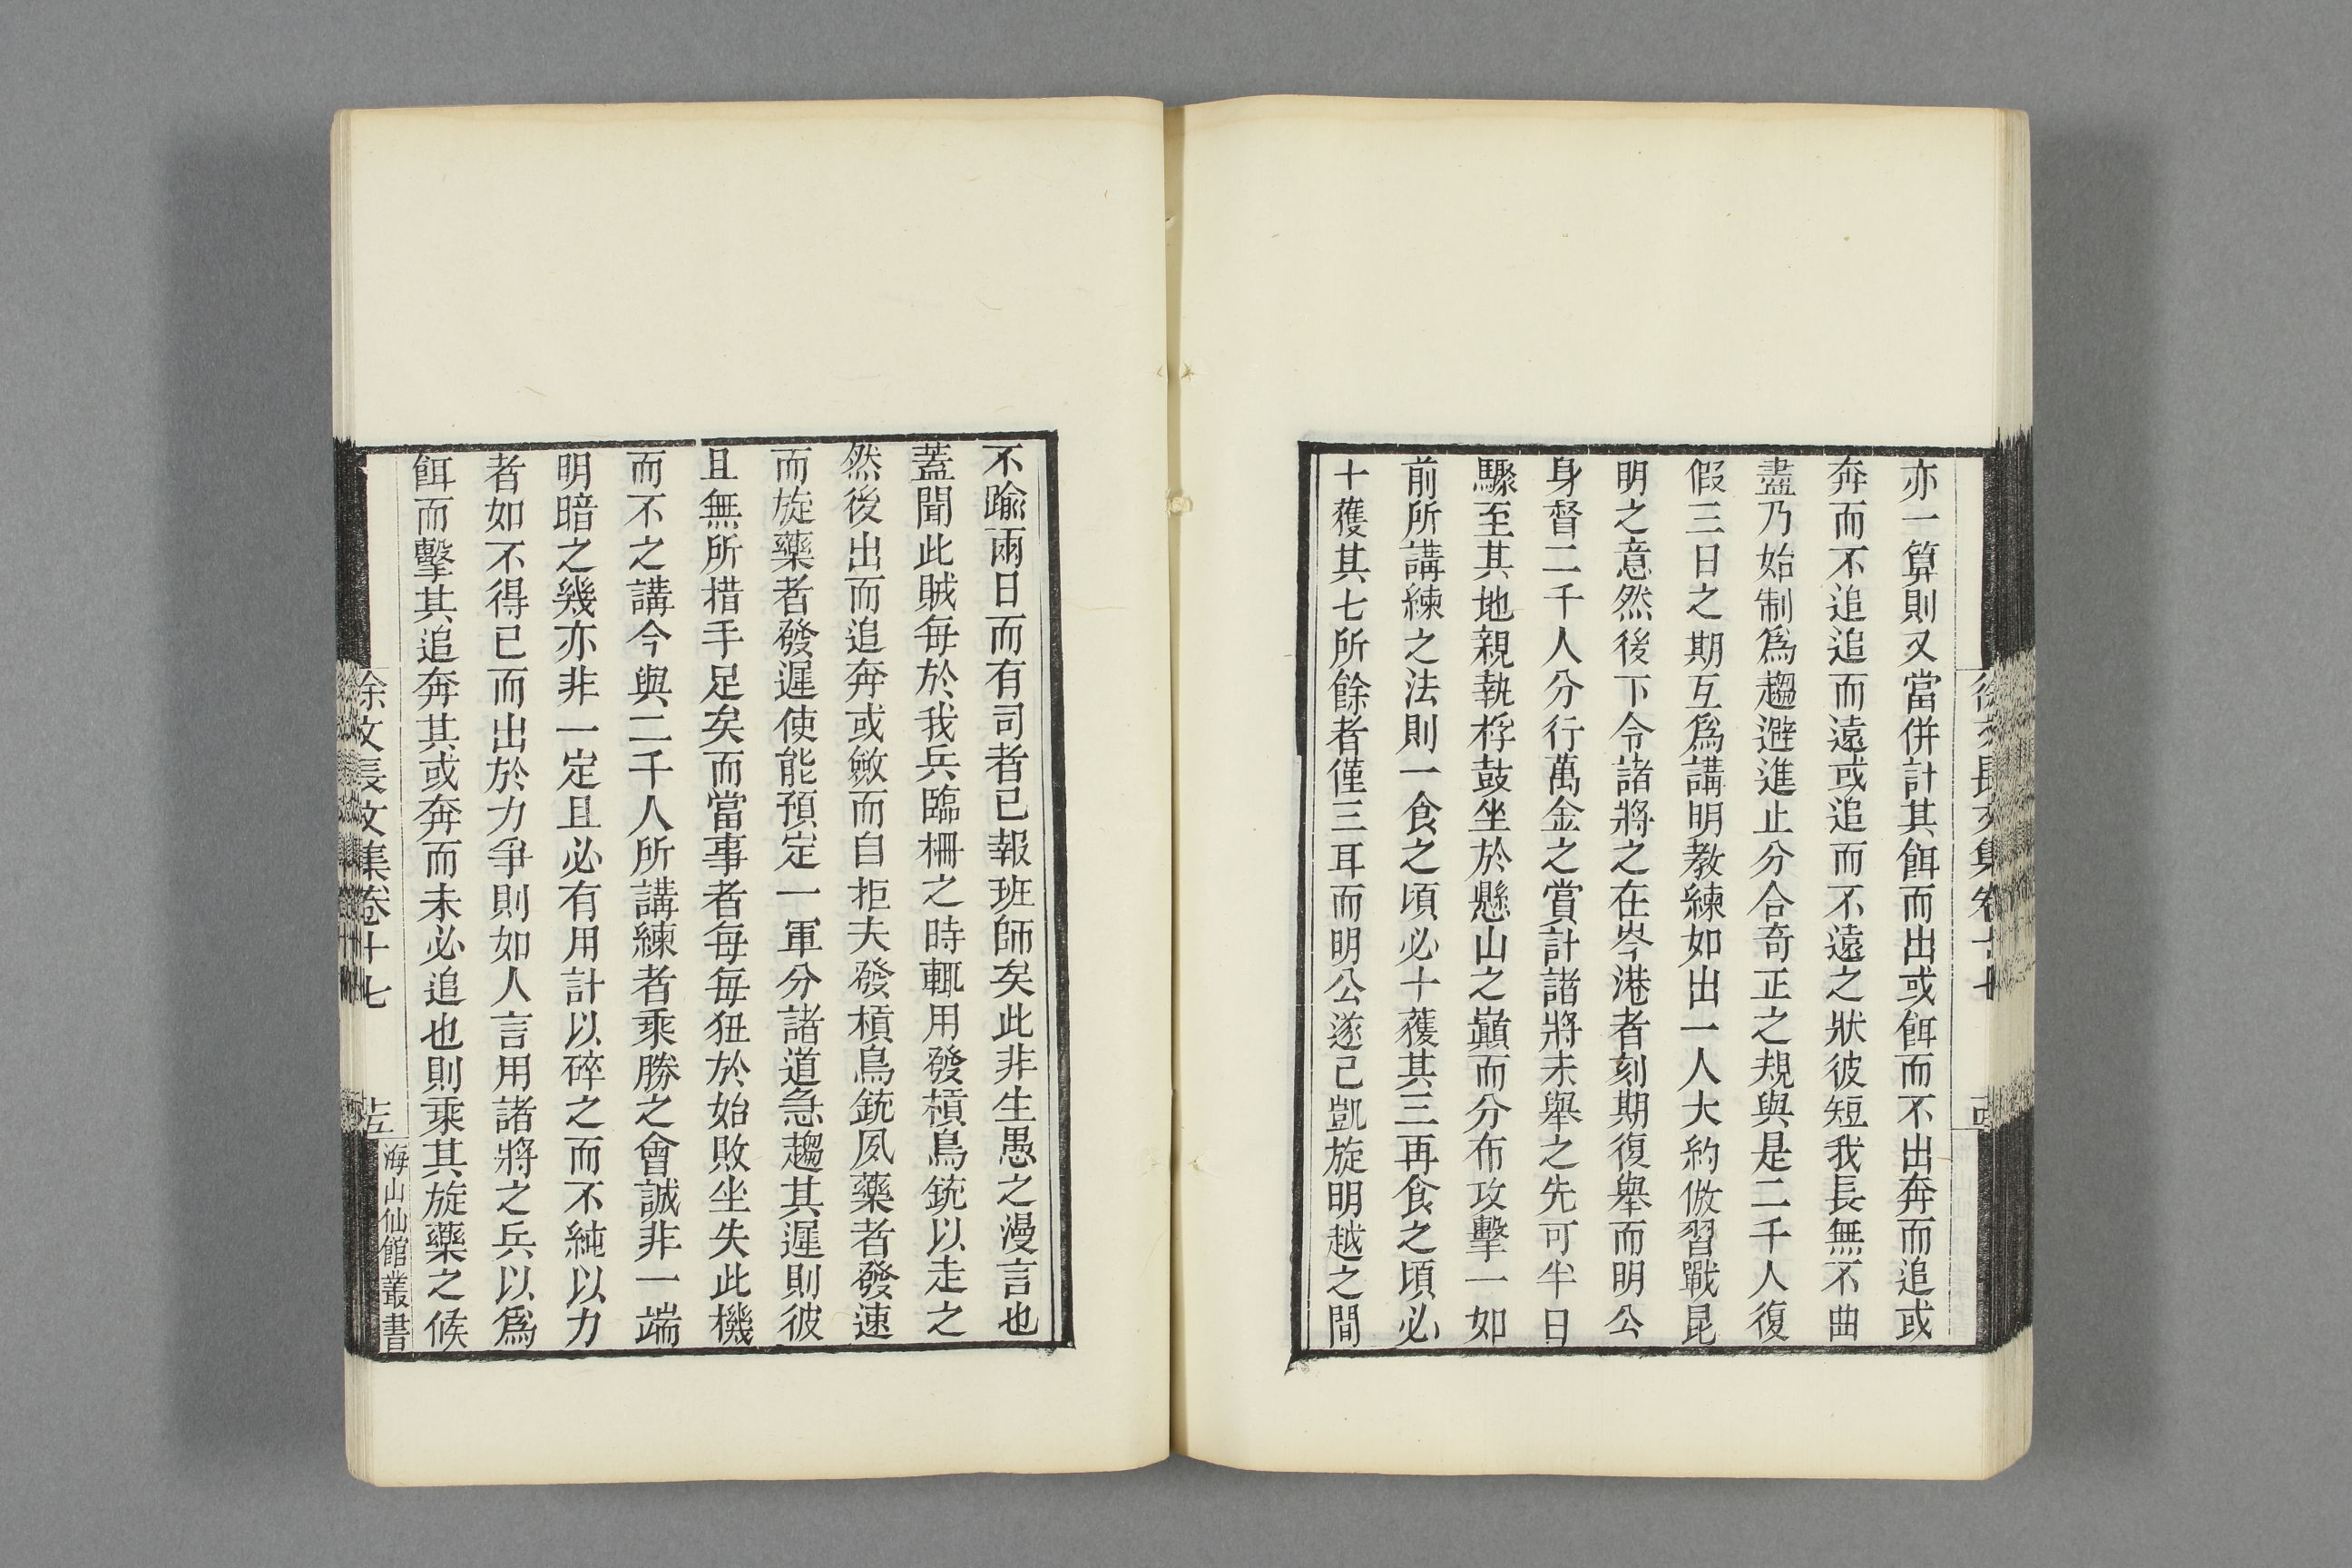 亦一算則又當併計其餌而出或餌而不出奔而追或
奔而不追追而遠或追而不遠之狀彼短我長無不曲
盡乃始制爲趨避進止分合奇正之規與是二千人復
假三日之期互爲講明教練如出一人大約倣習戰昆
明之意然後下令諸將之在岑港者刻期復舉而明公
身督二千人分行萬金之賞計諸將未舉之先可半日
驟至其地親執桴鼓坐於懸山之巔而分布攻擊一如
前所講練之法則一食之頃必十蕿其三再食之頃必
十蕿其七所餘者僅三耳而明公遂已凱旋明越之間
不踰兩日而有司者已報班師矣此非生愚之漫言也
蓋聞此賊每於我兵臨柵之時輒用發槓鳥銃以走之
然後出而追奔或斂而自拒夫發槓鳥銃夙藥者發速
而旋藥者發遲使能預定一軍分諸道急趨其遲則彼
且無所措手足矣而當事者每每狃於始敗坐失此機
而不之講今與二千人所講練者乘勝之會誠非一端
明暗之幾亦非一定且必有用計以碎之而不純以力
者如不得已而出於力爭則如人言用諸將之兵以爲
餌而擊其追奔其或奔而未必追也則乘其旋藥之候
徐文長文集卷十七
海山仙館叢書